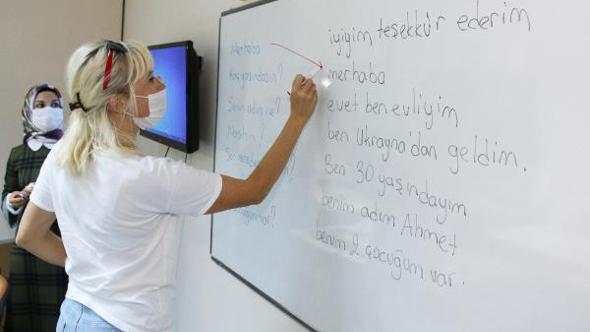 Merhaba
Kaç yaşındasın?
Senin adın ne?
Nasılsın?
iyiyim teşekkür ederim
merhaba
evet ben evliyim
ben Ukrayna'dan geldim.
Ben 30 yaşındayım
benim adım Ahmet
benim 2 çocuğum var.